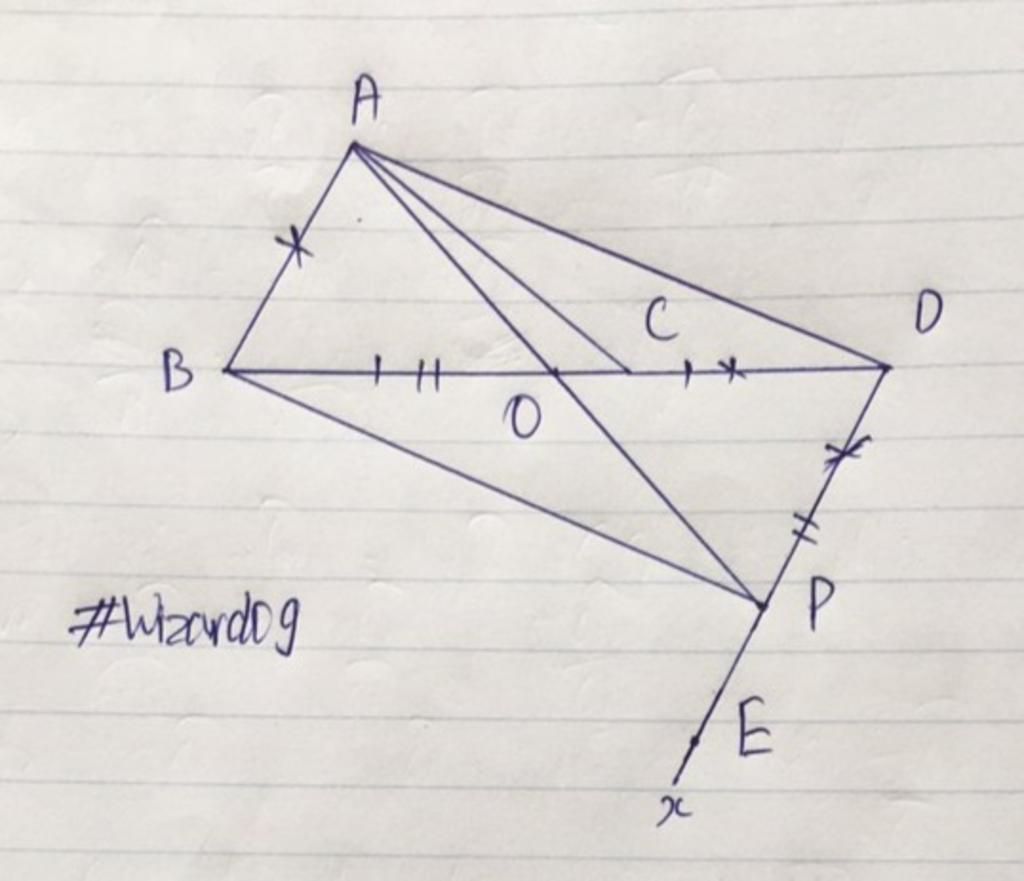 A
C
D
B
O
P
#Wizardog
E
x